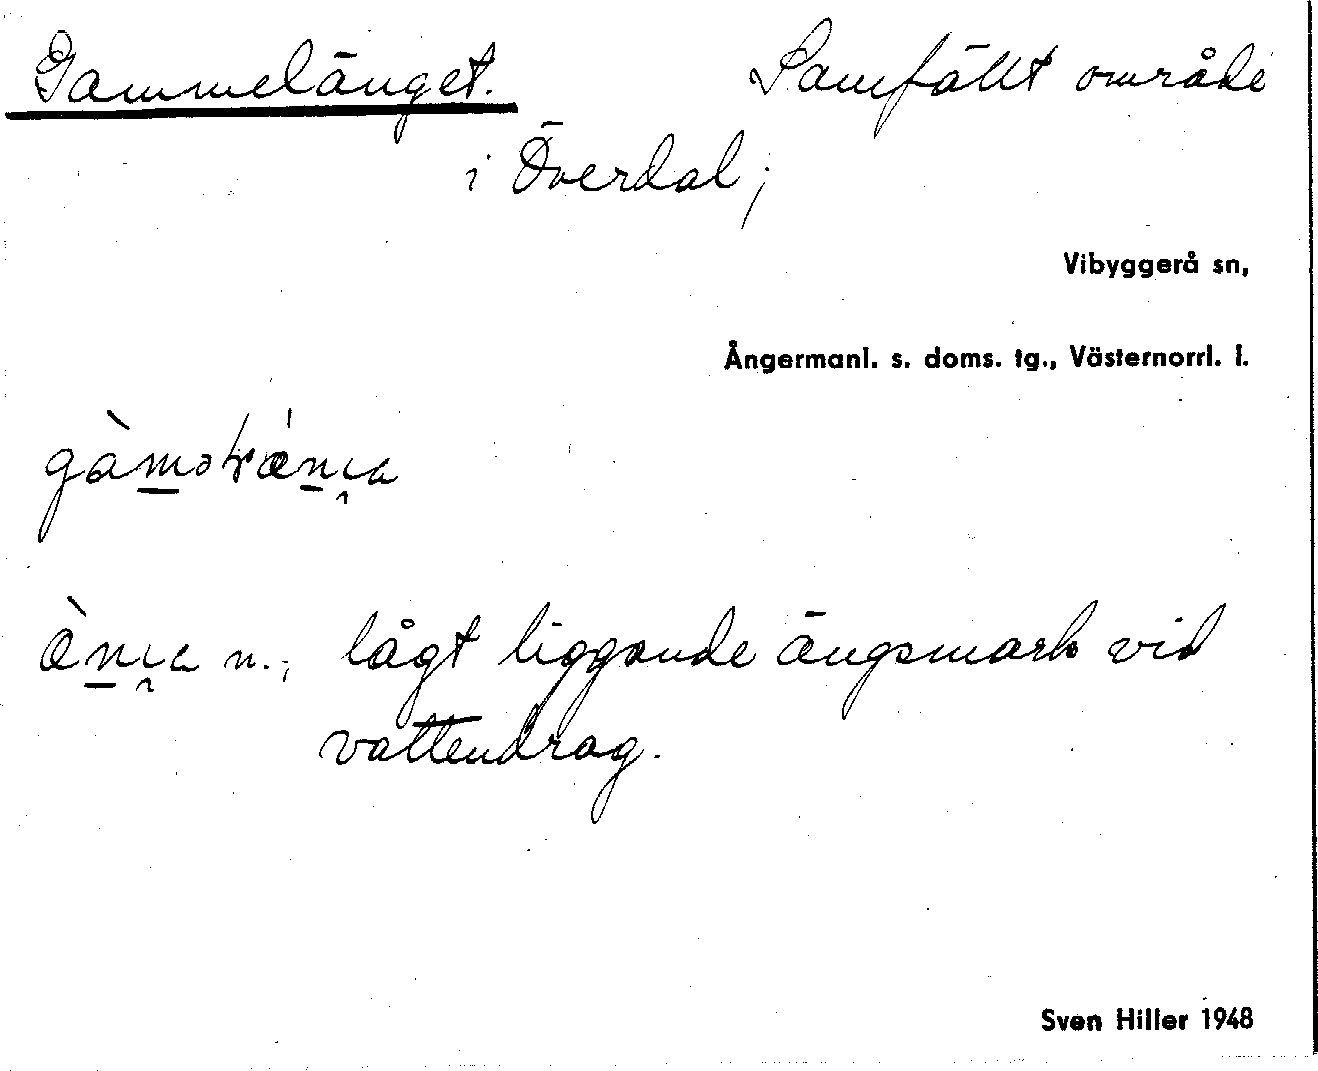 Gammelänget. Samfällt område
i Överdal;
Vibyggerå sn,
Ångermanl. s. doms. tg., Västernorrl. l.
n.; lågt liggande ängsmark vid
vattendrag.
Sven Hiller 1948